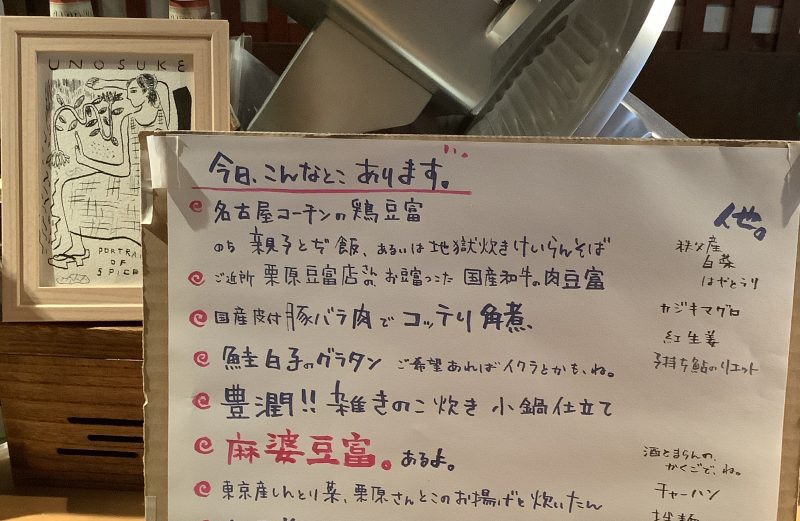 UNOSUKE
PORTRAI
OF
SPICE
今日、こんなとこ あります。
名古屋コーチンの鶏豆富
のち 親子とぢ飯、あるいは地獄炊きけいらんそば
ご近所 栗原豆富店さんの、お豆富つこた 国産和牛の肉豆富
国産皮付豚バラ肉で コッテリ角煮、
鮭白子のグラタン ご希望あればイクラとかも、ね。
豊潤!! 雑きのこ炊き 小鍋仕立て
麻婆豆富。あるよ。
東京産しんとり菜、栗原さんとこのお揚げと炊いたん
他。
秩父産
白菜
はやとうり
カジキマグロ
紅生姜
子持ち鮎のリエット
酒とまらんの、
かくごで、ね。
チャーハン